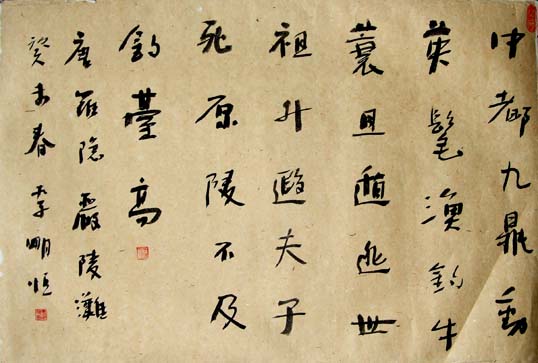 中都九鼎勤
英髦漁釣牛
蓑且遁逃世
祖升遐夫子
死原陵不及
釣臺高
唐羅隐嚴陵灘
癸未春李明恒